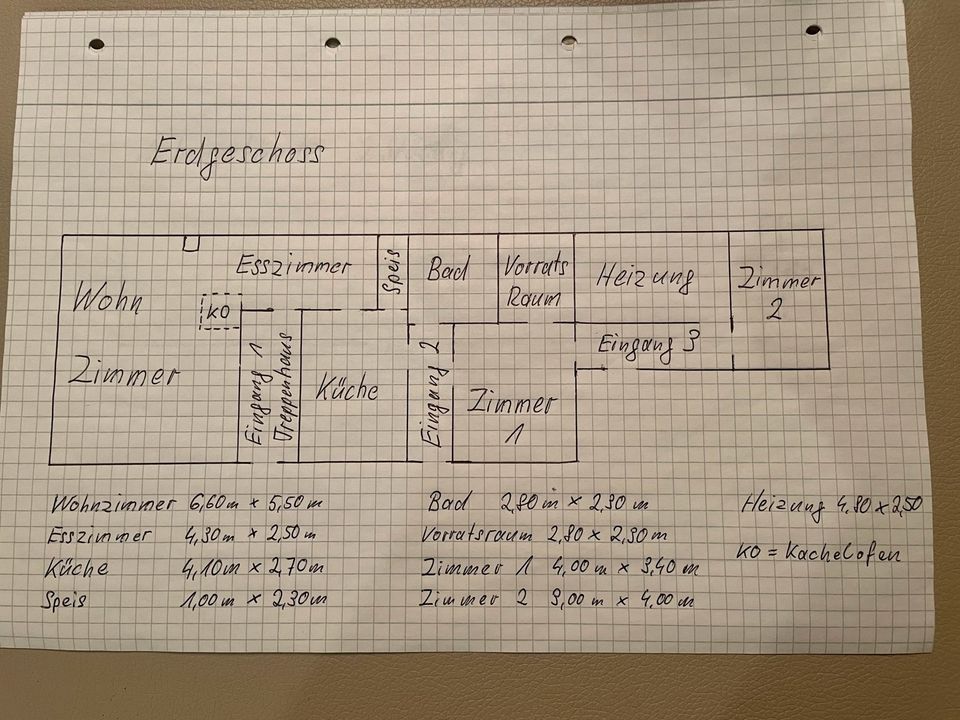 Erdgeschoss
Wohn
Zimmer
KO
Esszimmer
Speis
Bad
Vorrats
Raum
Heizung
Zimmer
2
Eingang 1
Treppenhaus
Küche
Eingang 2
Zimmer
1
Eingang 3
Wohnzimmer 6,60m x 5,50m
Esszimmer 4,30m x 2,50m
Küche 4,10m x 2,70m
Speis 1,00m x 2,30m
Bad 2,80m x 2,30m
Vorratsraum 2,80 x 2,30m
Zimmer 1 4,00m x 3,40m
Zimmer 2 3,00m x 4,00m
Heizung 4,80 x 2,50
KO = Kachelofen